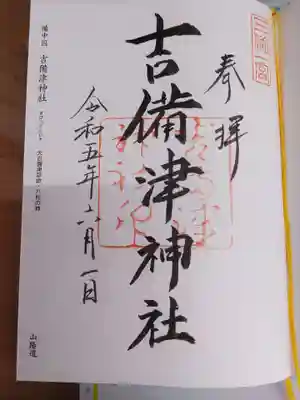 三備一宮
奉拝
吉備津神社
令和五年六月一日
備中国 吉備津神社
山陽道